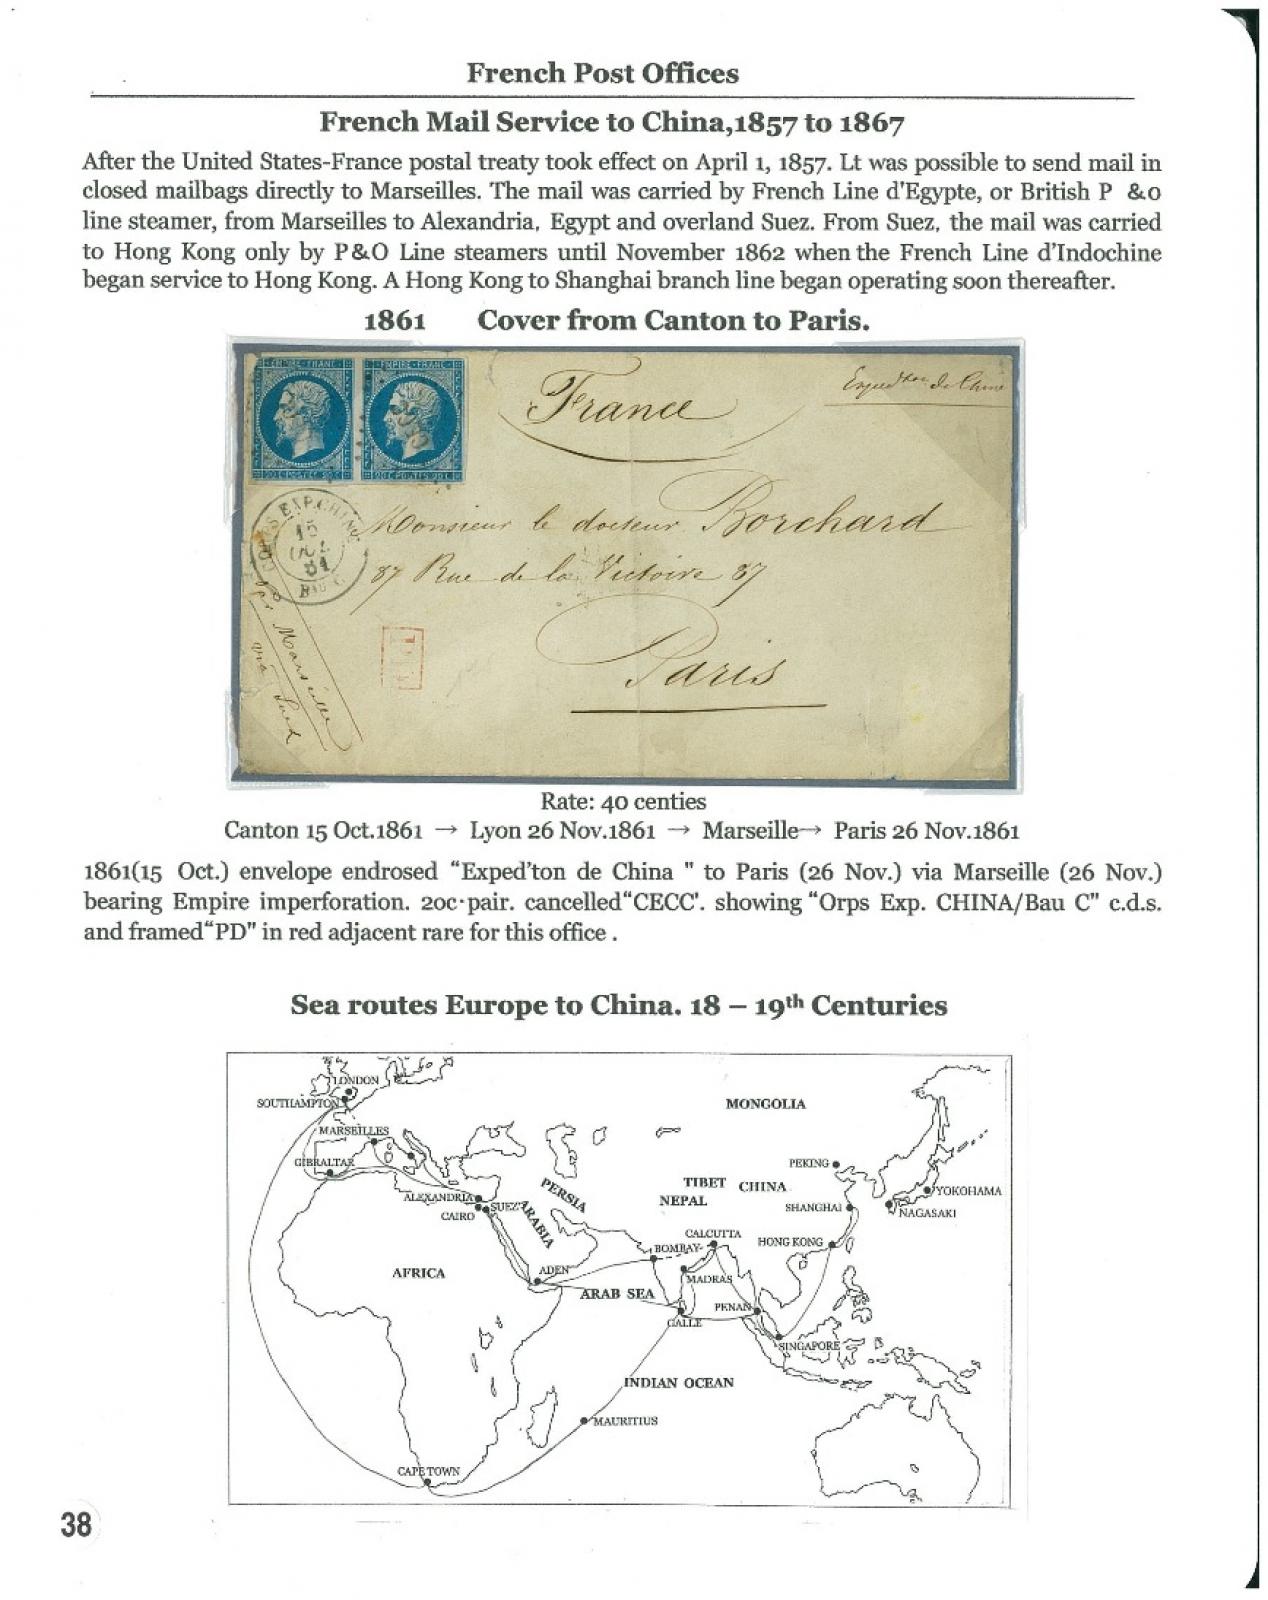 French Post Offices
French Mail Service to China,1857 to 1867
After the United States-France postal treaty took effect on April 1, 1857. Lt was possible to send mail in
closed mailbags directly to Marseilles. The mail was carried by French Line d'Egypte, or British P &o
line steamer, from Marseilles to Alexandria, Egypt and overland Suez. From Suez, the mail was carried
to Hong Kong only by P&O Line steamers until November 1862 when the French Line d'Indochine
began service to Hong Kong. A Hong Kong to Shanghai branch line began operating soon thereafter.
1861 Cover from Canton to Paris.
EMPIRE FRANC
EMPIRE FRANC
20 C POSTES 20 C
20 C POSTES 20 C
France
de Chine
EXP. CHINE
15
61
Bau C
Monsieur le docteur Borchard
87 Rue de la Victoire 87
Paris
Marseille
via
Rate: 40 centies
Canton 15 Oct.1861 → Lyon 26 Nov.1861 → Marseille→ Paris 26 Nov.1861
1861(15 Oct.) envelope endrosed “Exped'ton de China " to Paris (26 Nov.) via Marseille (26 Nov.)
bearing Empire imperforation. 20c·pair. cancelled“CECC'. showing “Orps Exp. CHINA/Bau C" c.d.s.
and framed“PD" in red adjacent rare for this office .
Sea routes Europe to China. 18 – 19th Centuries
LONDON
SOUTHAMPTON
MONGOLIA
MARSEILLES
GIBRALTAR
PEKING
PERSIA
TIBET
CHINA
NEPAL
YOKOHAMA
ALEXANDRIA
SUEZ
CAIRO
ARABIA
SHANGHAI
NAGASAKI
CALCUTTA
BOMBAY
HONG KONG
AFRICA
ADEN
MADRAS
ARAB SEA
PENAN
GALLE
SINGAPORE
INDIAN OCEAN
MAURITIUS
CAPE TOWN
38